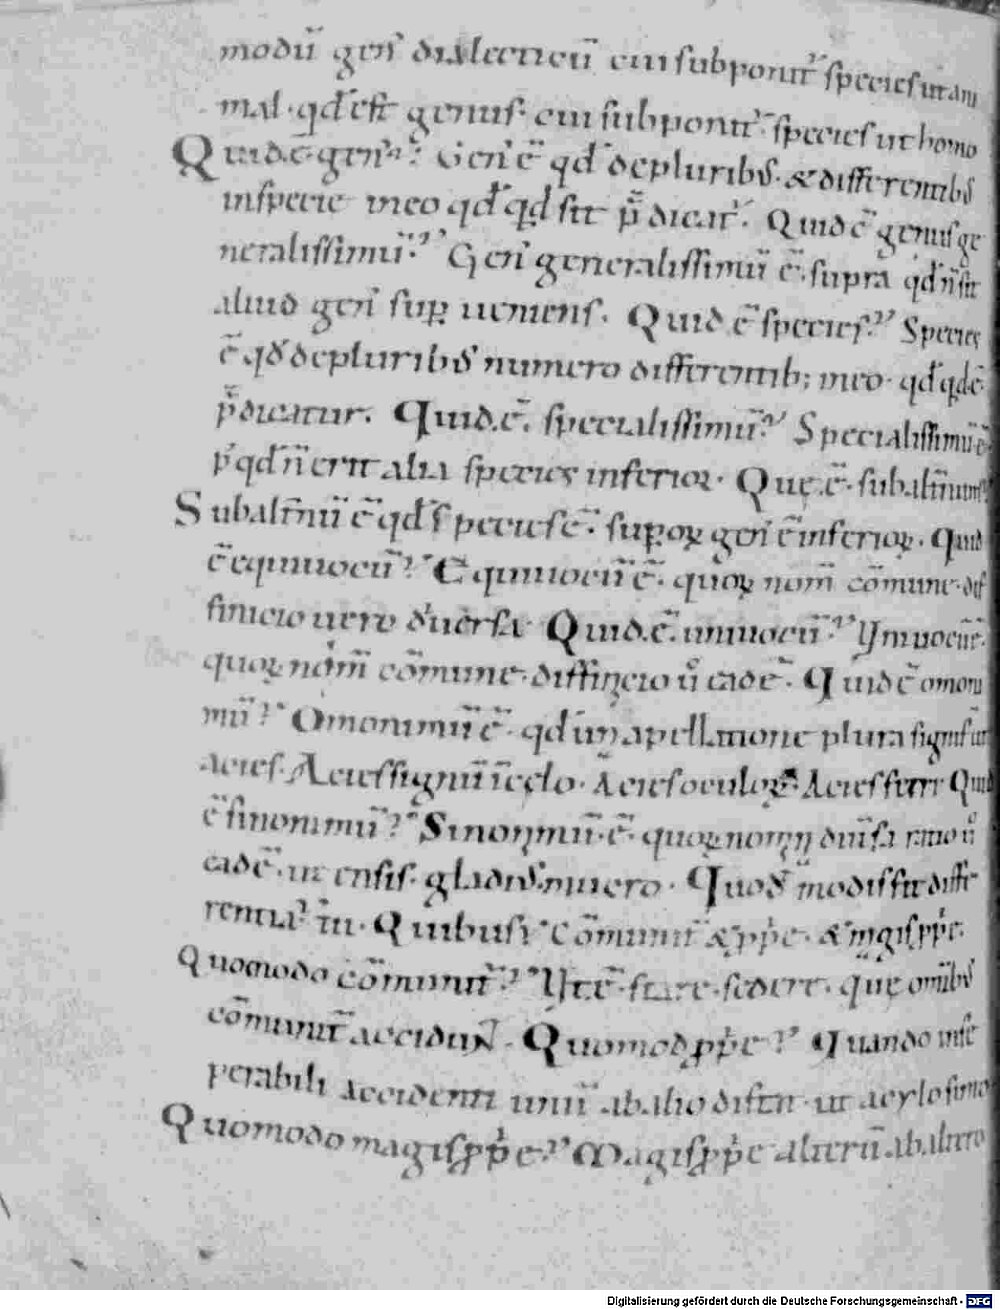 modũ gen̉ dialecticũ cui subponit̃ species ut ani
mal · qđ est genus · cui subponit̃ · species ut homo
Quid · ẽ · gen̉ ? Gen̉ ẽ qđ de pluribus · & differentibus
inspecie ineo qđ qđ sit p̃dicat̃ · Quid ẽ genus ge
neralissimũ ? Gen̉ generalissimũ ẽ · supra qđ ñ sit
aliud gen̉ sup ueniens · Quid ẽ species ? Species
ẽ qđ de pluribus numero differentib; ineo · qđ qđ ẽ
p̃dicatur . Quid · ẽ · specialissimũ ? Specialissimũ · ẽ
p̉ qđ ñ erit alia species inferior · Quę · ẽ · subalt̃num
Subalt̃nũ ẽ qđ species ẽ · supꝑoꝝ gen̉ ẽ inferioꝝ · Quid
ẽ equiuocũ ? Equiuocũ ẽ · quoꝝ nom̃ cõmune · dif
finicio uero diuersa · Quid · ẽ · uniuocũ ? Yniuocũ ẽ ·
quoꝝ nom̃ cõmune · diffinicio ů eadẽ · Quid ẽ omoni
mũ ? Omonimũ ẽ · qđ una apellatione plura significat
acies · Acies signũ in cęlo · Acies oculoꝝ · Acies ferri Quid
ẽ sinonimũ ? Sinonimũ · ẽ · quoꝝ nom̃ diuısa ratio ů
eadẽ · ut ensis · gladius · mucro · Quod modis fit diffe
rentia ? iii · Quibus ? Cõmunit̃ & ꝓprie · & magis ꝓprie ·
Quomodo cõmunit̃ ? Yt ẽ · stare · sedere · quę omnibus
cõmunit̃ accidunt · Quomodo ꝓprie ? Quando inse
perabili accidenti unũ ab alio distat · ut acylo simo
Quomodo magis ꝓprie ? Magis ꝓprie alterũ ab altero
Digitalisierung gefördert durch die Deutsche Forschungsgemeinschaft - DFG